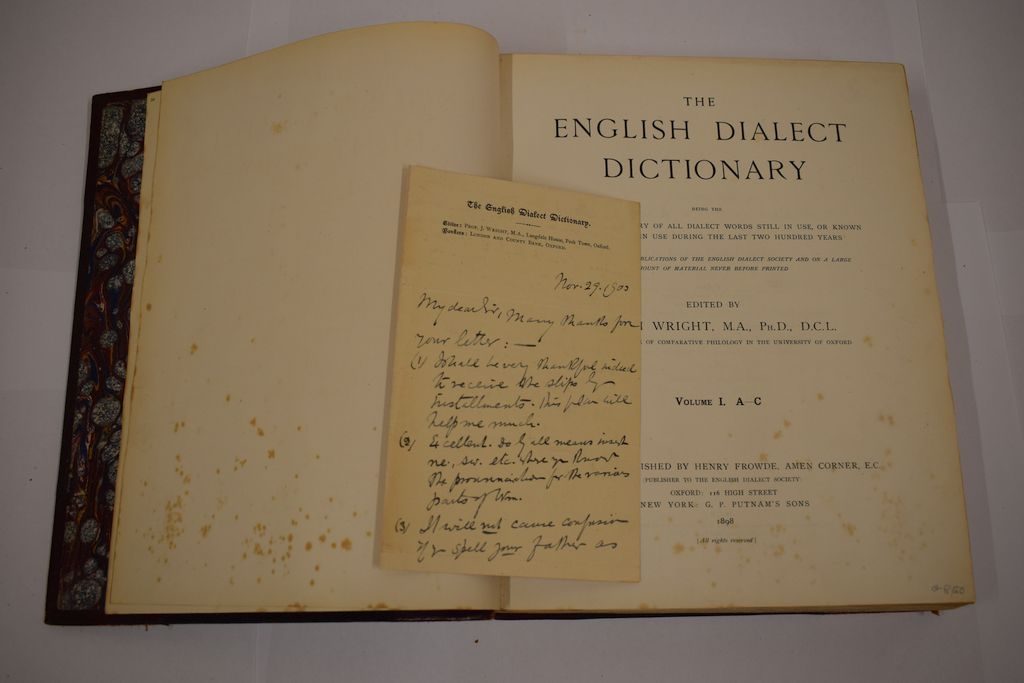 THE
ENGLISH DIALECT
DICTIONARY
BEING THE
RY OF ALL DIALECT WORDS STILL IN USE, OR KNOWN
N USE DURING THE LAST TWO HUNDRED YEARS
BLICATIONS OF THE ENGLISH DIALECT SOCIETY AND ON A LARGE
OUNT OF MATERIAL NEVER BEFORE PRINTED
EDITED BY
WRIGHT, M.A., PH.D., D.C.L.
OF COMPARATIVE PHILOLOGY IN THE UNIVERSITY OF OXFORD
VOLUME I. A–C
ISHED BY HENRY FROWDE, AMEN CORNER, E.C.
PUBLISHER TO THE ENGLISH DIALECT SOCIETY
OXFORD: 116 HIGH STREET
NEW YORK: G. P. PUTNAM'S SONS
1898
[All rights reserved]
The English Dialect Dictionary.
Editor: PROF. J. WRIGHT, M.A., Langdale House, Park Town, Oxford.
Bankers: LONDON AND COUNTY BANK, OXFORD.
Nov. 29. 1900
My dear Sir, Many thanks for
your letter: —
(1) I shall be very thankful indeed
to receive the slips by
installments. This plan will
help me much.
(2) Excellent. Do by all means insert
ne., sw. etc. where you know
the pronunciation for the various
parts of Wm.
(3) It will not cause confusion
if you spell your father as